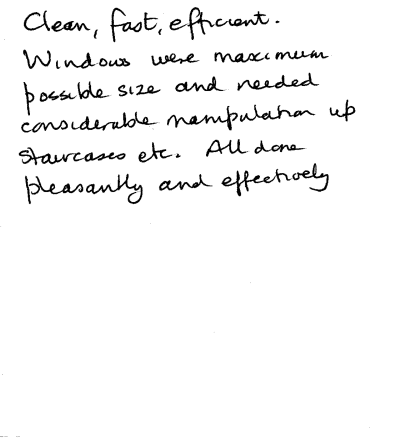 Clean, fast, efficient.
Windows were maximum
possible size and needed
considerable manipulation up
staircases etc. All done
pleasantly and effectively